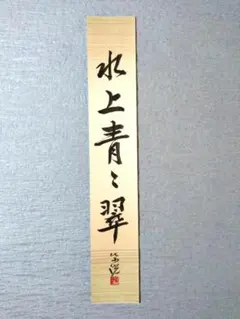 水上青〻翠